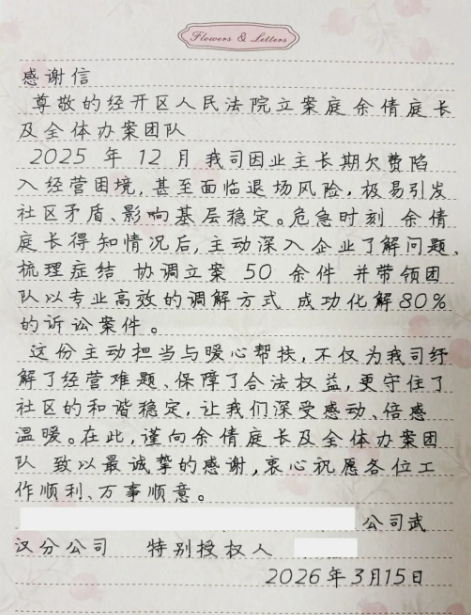 Flowers & Letters
感谢信
尊敬的经开区人民法院立案庭余倩庭长
及全体办案团队
2025 年 12 月 我司因业主长期欠费陷
入经营困境，甚至面临退场风险，极易引发
社区矛盾、影响基层稳定。危急时刻 余倩
庭长得知情况后，主动深入企业了解问题、
梳理症结 协调立案 50 余件 并带领团
队以专业高效的调解方式 成功化解80%
的诉讼案件。
这份主动担当与暖心帮扶，不仅为我司纾
解了经营难题、保障了合法权益，更守住了
社区的和谐稳定，让我们深受感动、倍感
温暖。在此，谨向余倩庭长及全体办案团
队 致以最诚挚的感谢，衷心祝愿各位工
作顺利、万事顺意。
公司武
汉分公司 特别授权人
2026年3月15日